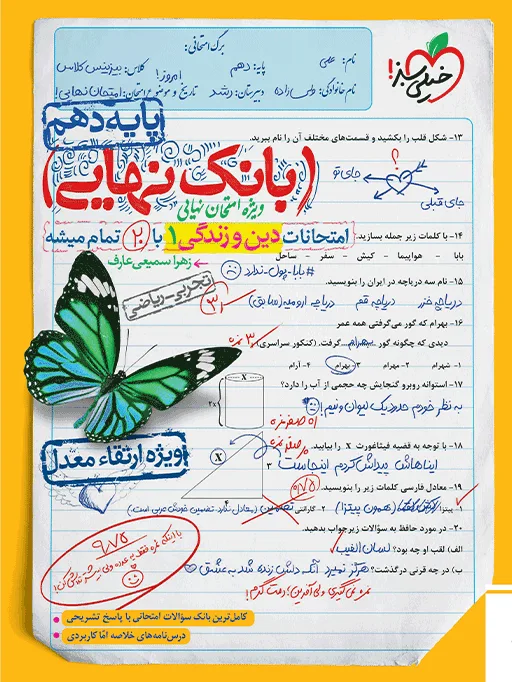 برگ امتحانی:
نام: علی
پایه: دهم
کلاس: بیزینس کلاس
نام خانوادگی:
دبیرستان: رشد
تاریخ و موضوع امتحان: امتحان نهایی!
امروز!
خیلی سبز!
پایه دهم
(بانک نهایی)
ویژه امتحان نهایی
امتحانات دین و زندگی ۱ با ۲۰ تمام میشه
زهرا سمیعی عارف
تجربی - ریاضی
۱۳- شکل قلب را بکشید و قسمت‌های مختلف آن را نام ببرید.
؟
جای تو
جای قبلی
۱۴- با کلمات زیر جمله بسازید.
بابا - هواپیما - کیش - سفر - ساحل
#بابا-پول-ندارد
۱۵- نام سه دریاچه در ایران را بنویسید.
دریاچه خزر دریاچه قم دریاچه ارومیه (سابق)
۱۶- بهرام که گور می‌گرفتی همه عمر
دیدی که چگونه گور بهرام گرفت. (کنکور سراسری)
۳ نمره
۱- شهرام ۲- مهرام ۳- بهرام ۴- آرام
۱۷- استوانه روبرو گنجایش چه حجمی از آب را دارد؟
X
2X
به نظر خودم حدود یک لیوان و نیم!
۱۸- با توجه به قضیه فیثاغورث X را بیابید.
ایناهاش پیداش کردم اینجاست
X
۳
۴
۱۹- معادل فارسی کلمات زیر را بنویسید.
۰/۷۵
۱- پیتزا (همون پیتزا) ۲- گارانتی تضمین (معادل ندارد تضمین خودش عربی است)
۲۰- در مورد حافظ به سؤالات زیر جواب بدهید.
الف) لقب او چه بود؟ لسان الغیب
ب) در چه قرنی درگذشت؟ هرگز نمیرد آنکه دلش زنده شد به عشق
نمره نمی‌گیری ولی آفرین! دمت گرم!
ویژه ارتقاء معدل
۹/۷۵
کامل‌ترین بانک سؤالات امتحانی با پاسخ تشریحی
درس‌نامه‌های خلاصه اما کاربردی